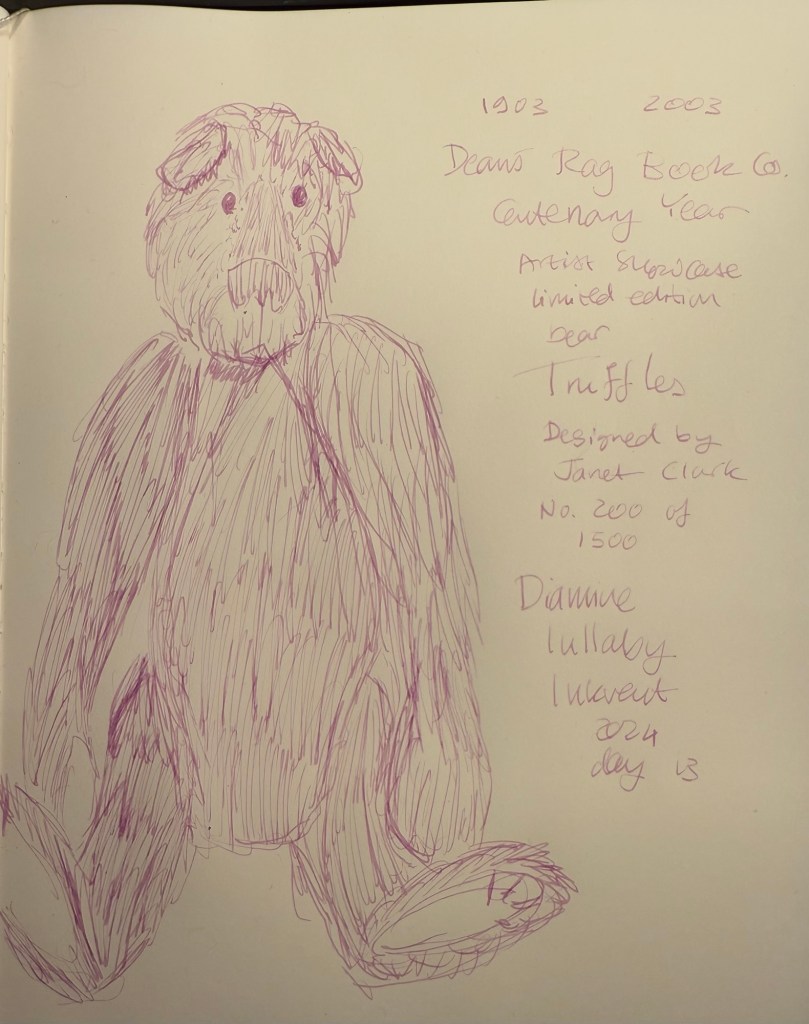 1903 2003
Deans Rag Book Co.
Centenary Year
Artist Showcase
limited edition
bear
Truffles
Designed by
Janet Clark
No. 200 of
1500
Diamine
lullaby
Inkvent
2024
day 13